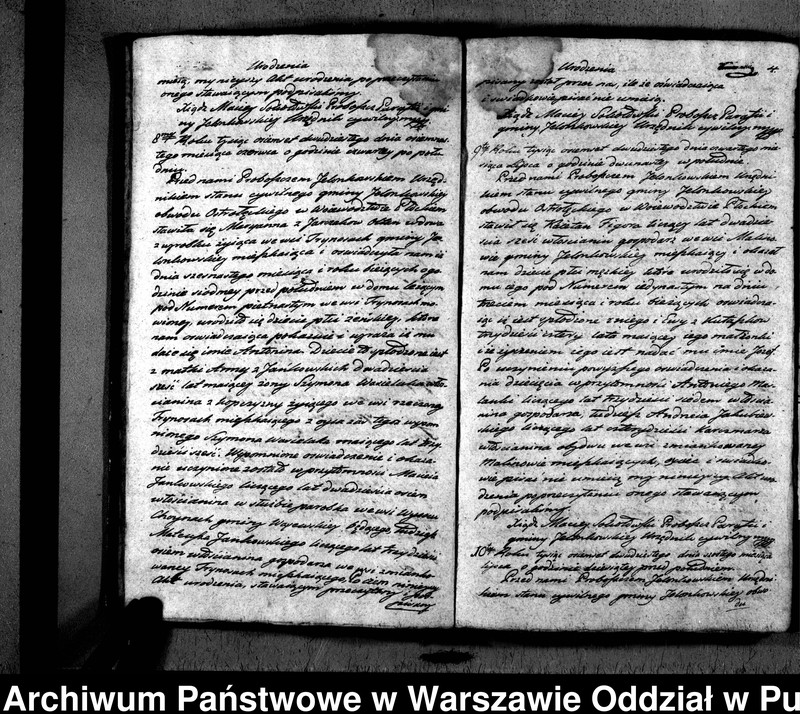 Urodzenia
my niżejszy Akt urodzenia po przeczytaniu
onego stawaiącym podpisaliśmy.
Xiądz Maciey Sobolewski Proboszcz Parafii i gmi
ny Jelonkowskiey Urzędnik cywilny mpp
8my Roku tysiąc osmset dwudziestego dnia osmna
stego miesiąca czerwca o godzinie czwartey po połu
dniu
Przed nami Proboszczem Jelonkowskim Urzęd
nikiem stanu cywilnego gminy Jelonkowskiey
obwodu Ostrołęckiego w Woiewództwie Płockim
stawiła się Maryanna z
żyiąca we wsi Frynosach gminy Je
lonkowskiey mieszkaiąca i oświadczyła nam iż
dnia szesnastego miesiąca i roku bieżących o go
dzinie siodmey przed południem w domu leżącym
pod Numerem piętnastym we wsi Frynosach
urodziło się dziecie płci żeńskiey, które
nam oświadczaiąca pokazuie i wyraża iż mu
daie się imie Antonina. Dziecie to spłodzone iest
z matki Anny z Jankowskich dwadzieścia
sześć lat maiącey żony Szymona Wasielaka wło
ścianina z żyiącego we wsi rzeczoney
Frynosach mieszkaiącego z oyca zaś tegoż wspom
nionego Szymona Wasielaka maiącego lat trzy
dzieści sześć. Wspomnione oświadczenie i okaza
nie uczynione zostało w przytomności Macieia
Jankowskiego liczącego lat dwadzieścia osiem
włościanina w służbie parobka we wsi
gminy będącego tudzież
Jankowskiego liczącego lat trzydzieści
osiem włościanina gospodarza we wsi zmianko
waney Frynosach mieszkaiącego. Po czem niniejszy
Akt urodzenia, stawaiącym przeczytany i pod
pisany
Urodzenia 4.
pisany został przez nas, ile że oświadczaiąca
i świadkowie pisać nie umieią.
Xiądz Maciey Sobolewski Proboszcz Parafii i
gminy Jelonkowskiey Urzędnik cywilny mpp
9ty Roku tysiąc osmset dwudziestego dnia czwartego mie
siąca lipca o godzinie dwunastey w południe.
Przed nami Proboszczem Jelonkowskim Urzędni
kiem stanu cywilnego gminy Jelonkowskiey
obwodu Ostrołęckiego w Woiewództwie Płockim
stawił się Kaietan Figura liczący lat dwadzie
ścia sześć włościanin gospodarz we wsi Malino
wie gminy Jelonkowskiey mieszkaiący i okazał
nam dziecie płci męskiey które urodziło się w do
mu iego pod Numerem iedynastym na dniu
trzecim miesiąca i roku bieżących oświadcza
iąc iż iest spłodzone z niego i Ewy z Kustoszków
trzydzieści cztery lata maiącey iego małżonki
i że życzeniem iego iest nadać mu imie Jozef
Po uczynieniu powyższego oświadczenia i okaza
nia dziecięcia w przytomności Antoniego
liczącego lat trzydzieści siedem włościa
nina gospodarza, tudzież Andrzeia Jakubow
skiego liczącego lat czterdzieści karczmarza
włościanina obydwu we wsi zmiankowaney
Malinowie mieszkaiących, oyciec i świadko
wie pisać nie umieią my niniejszy Akt uro
dzenia po przeczytaniu onego stawaiącym
podpisaliśmy.
Xiądz Maciey Sobolewski Proboszcz Parafii i
gminy Jelonkowskiey Urzędnik cywilny mpp
10ty Roku tysiąc osmset dwudziestego dnia szóstego miesiąca
lipca o godzinie dziewiątey przed południem.
Przed nami Proboszczem Jelonkowskim Urzędni
kiem stanu cywilnego gminy Jelonkowskiey obwo
du
Archiwum Państwowe w Warszawie Oddział w Pu